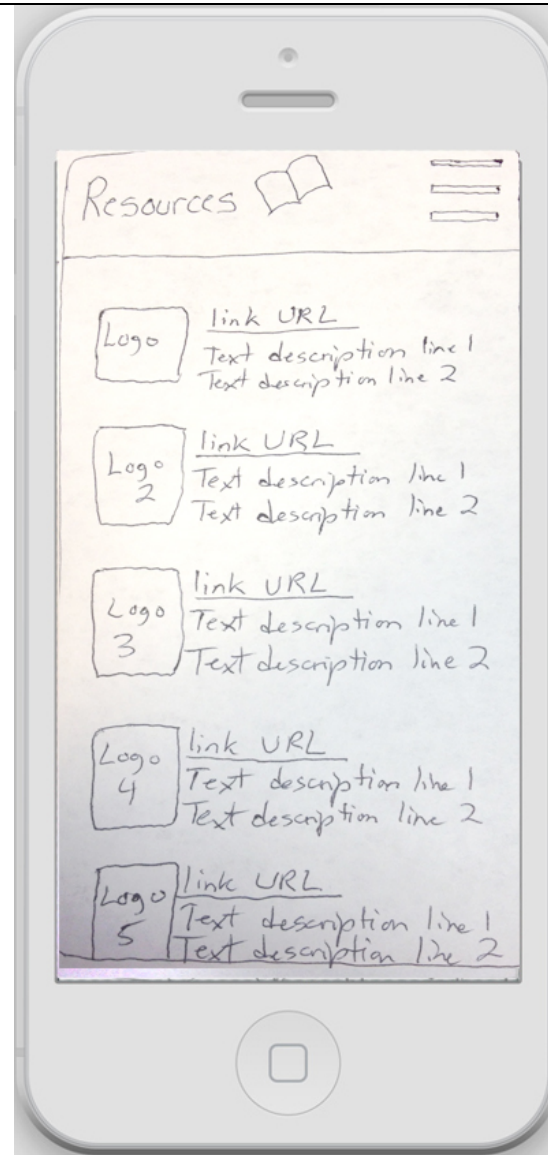 Resources
Logo
link URL
Text description line 1
Text description line 2
Logo
2
link URL
Text description line 1
Text description line 2
Logo
3
link URL
Text description line 1
Text description line 2
Logo
4
link URL
Text description line 1
Text description line 2
Logo
5
link URL
Text description line 1
Text description line 2